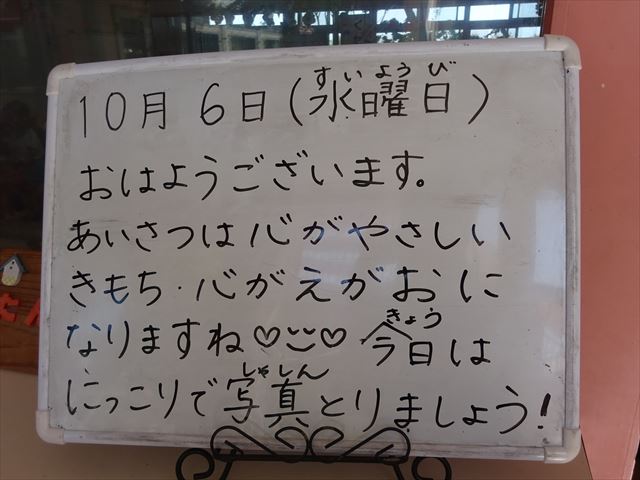 10月 6日(水曜日)
すいようび
おはようございます。
あいさつは心がやさしい
きもち・心がえがおに
なりますね♡ ♡ 今日は
きょう
にっこりで写真とりましょう!
しゃしん